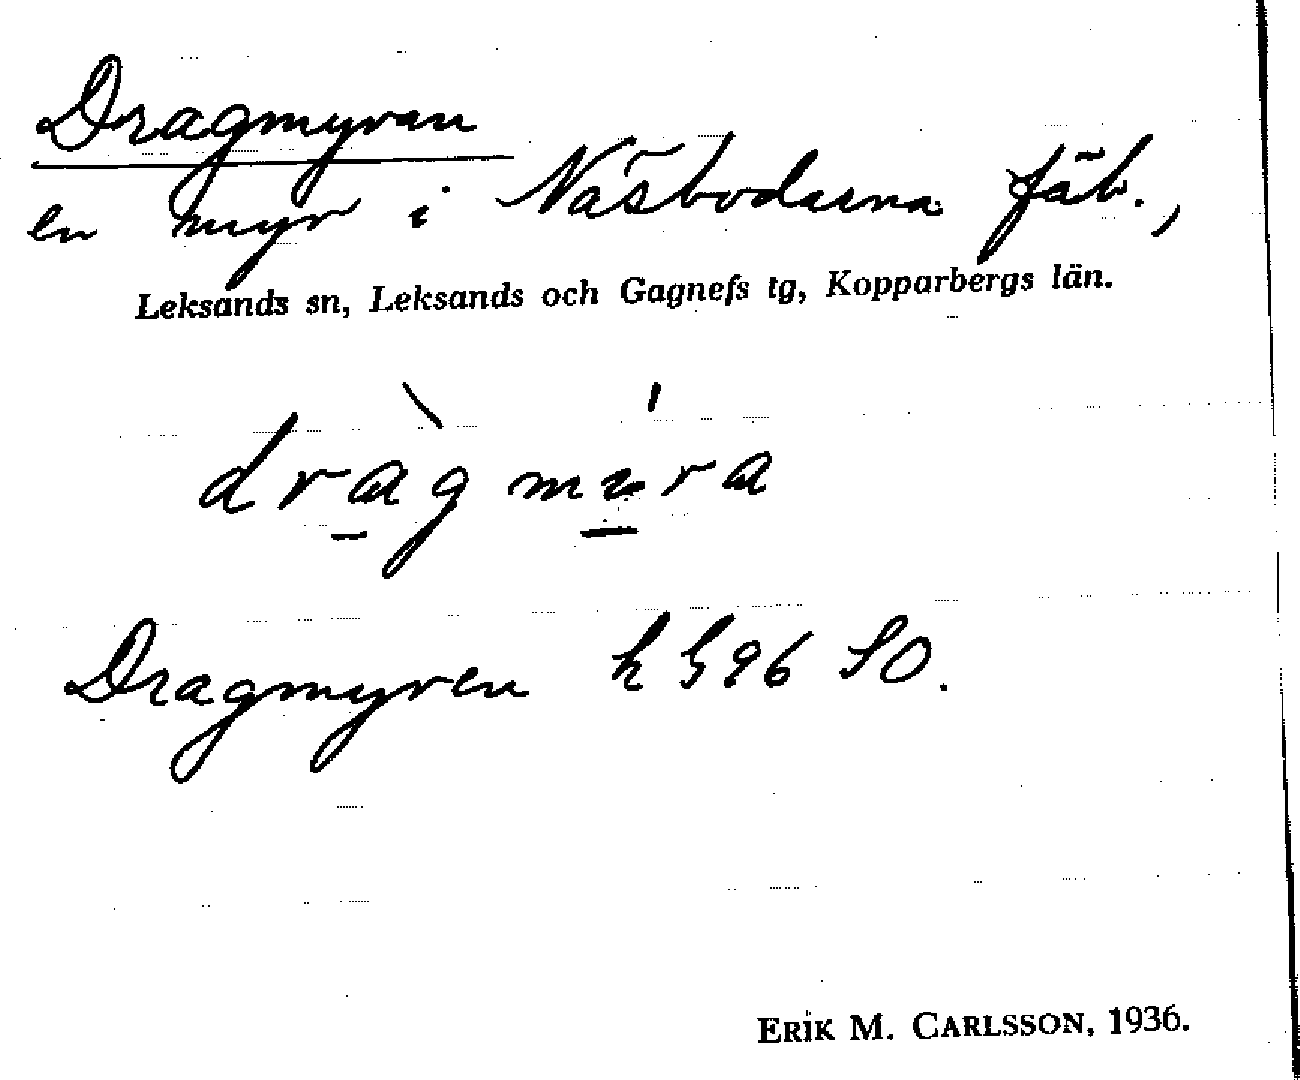 Dragmyran
en myr i Näsbodarna fäb.,
Leksands sn, Leksands och Gagnefs tg, Kopparbergs län.
Dragmyren k 596 SO.
ERIK M. CARLSSON, 1936.